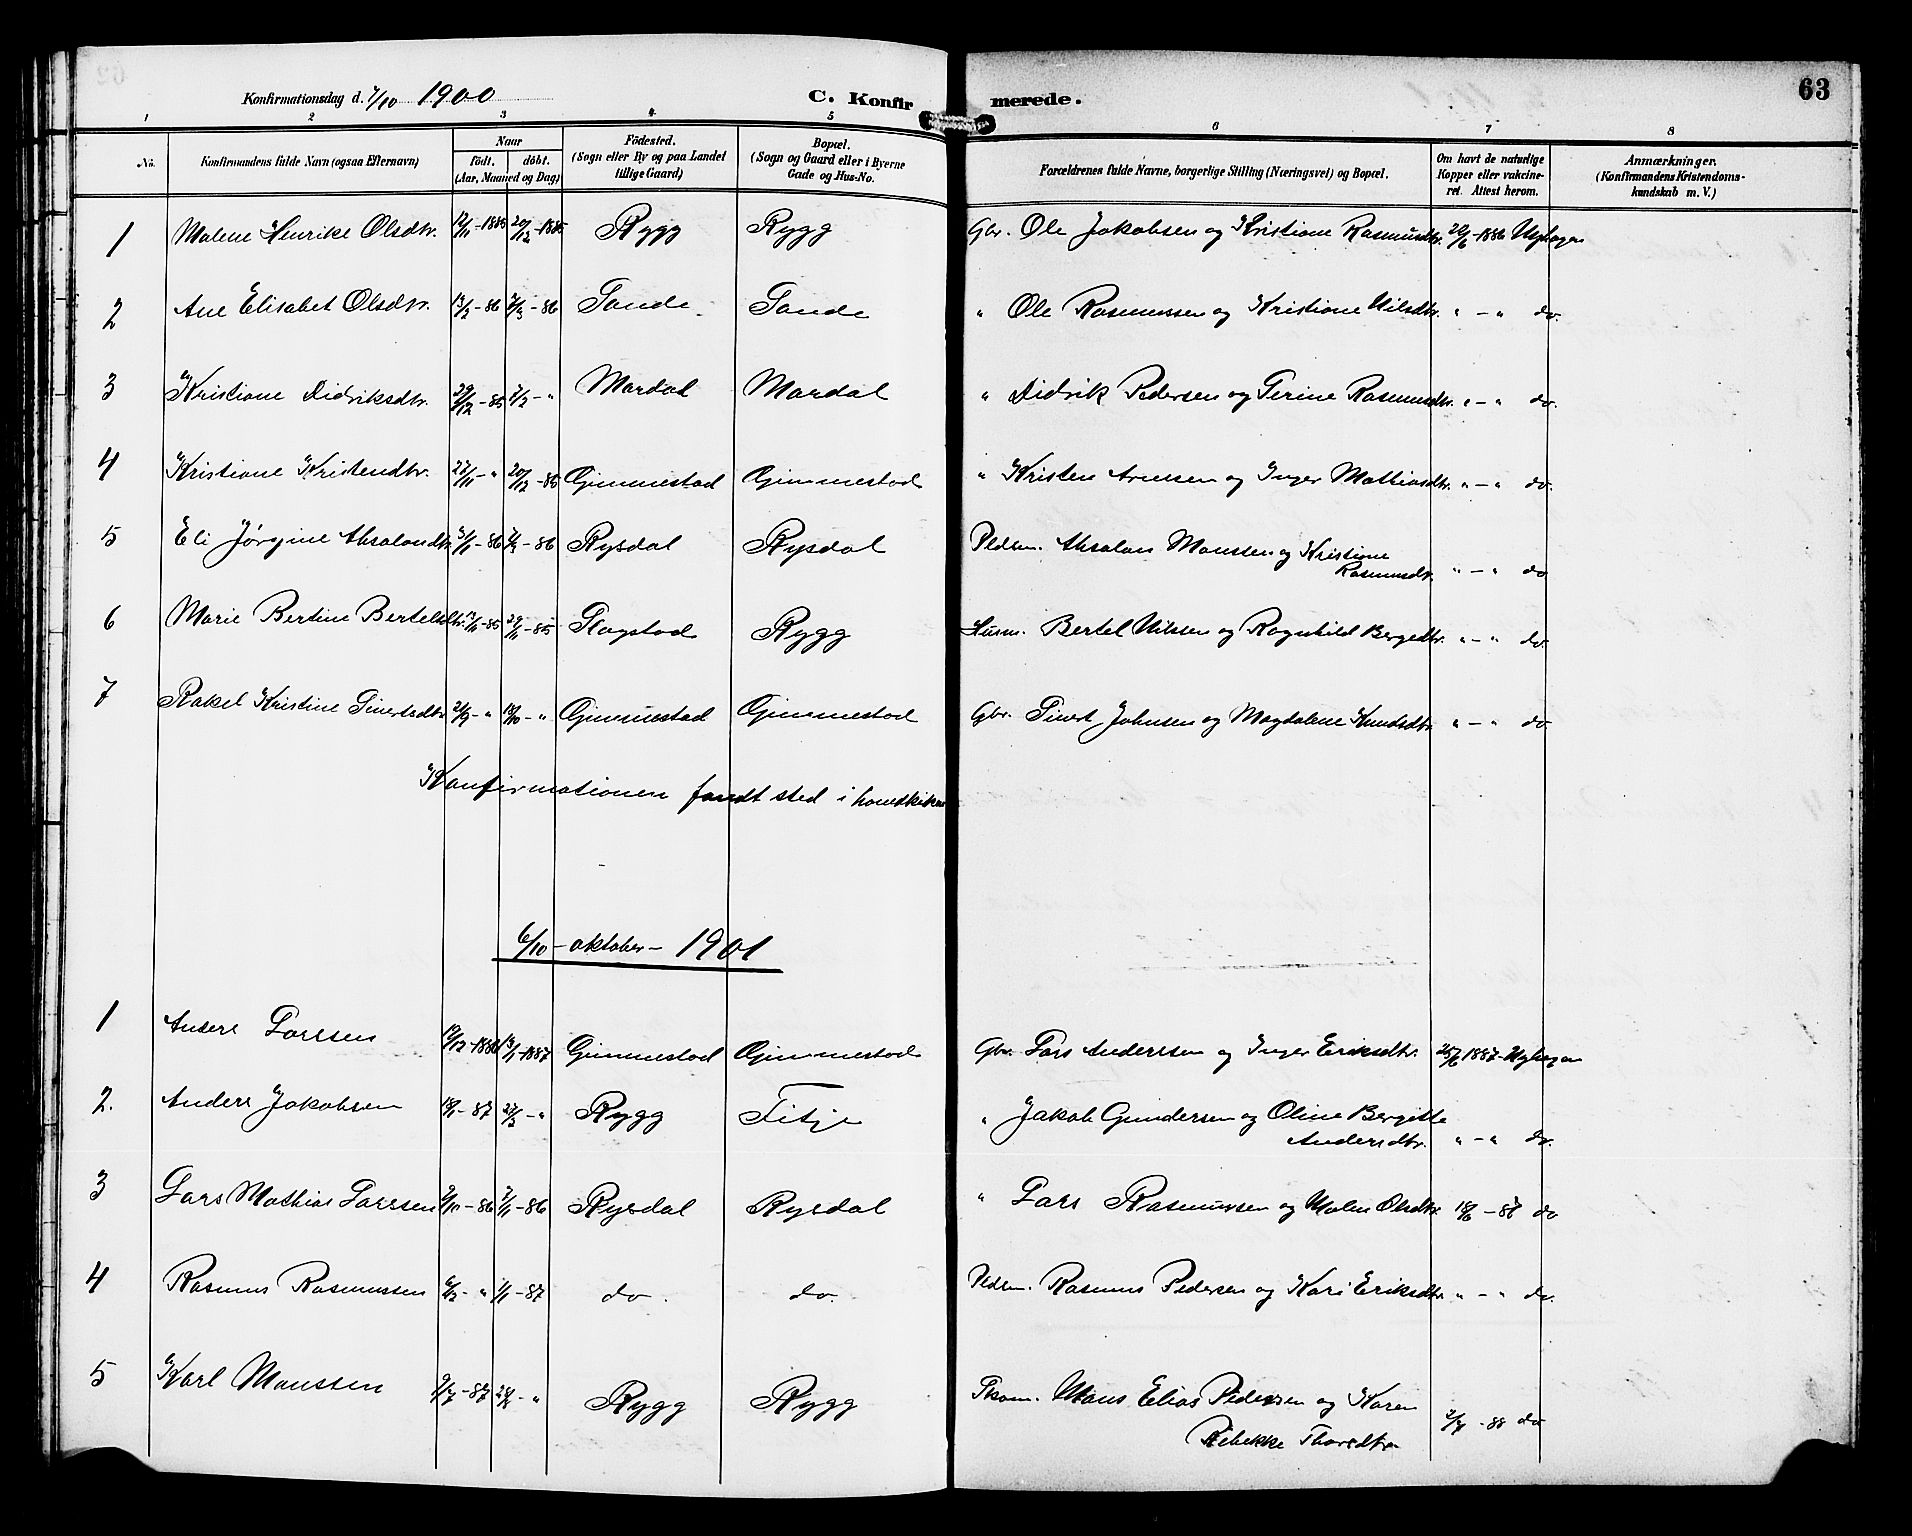 63
Konfirmationsdag d. 7/10 1900 C. Konfirmerede.
1 2 3 4 5 6 7 8
No. Konfirmandens fulde Navn (ogsaa Efternavn) Naar födt. döbt. (Aar, Maaned og Dag) Födested. (Sogn eller By og paa Landet tillige Gaard) Bopæl. (Sogn og Gaard eller i Byerne Gade og Hus-No. Forældrenes fulde Navne, borgerlige Stilling (Næringsvei) og Bopæl. Om havt de naturlige Kopper eller vakcineret. Attest herom. Anmærkninger. (Konfirmandens Kristendomskundskab m. V.)
1 Malene Henrike Olsdtr. 12/11-1885 20/12-1885 Rygg Rygg Gbr. Ole Jakobsen og Kristiane Rasmusdtr. 20/6-1886 Myhagen
2 Ane Elisabet Olsdtr. 13/2-86 7/3-86 Sande Sande " Ole Rasmussen og Kristiane Nilsdtr. " - " do.
3 Kristiane Didriksdtr. 29/12-85 7/2-" Mardal Mardal " Didrik Pedersen og Serine Rasmusdtr. " - " do.
4 Kristiane Kristendtr. 22/11-" 20/12-85 Gimmestad Gimmestad " Kristen Arnesen og Inger Mathiasdtr. " - " do.
5 Eli Jørgine Absalondtr. 3/1-86 7/2-86 Rysdal Rysdal Pldsm. Absalon Monssen og Kristiane
Rasmusdtr. " - " do
6 Marie Bertine Bertelsdtr. 85 29/11-85 Flagstad Rygg Husm. Bertel Nilssen og Ragnhild Bergedtr. " - " do.
7 Rakel Kristine Sivertsdtr 2/9-" 18/10-" Gimmestad Gimmestad Gbr. Sivert Johnsen og Magdalene Knudsdtr. " - " do.
Konfirmationen fandt sted i hovedkirken
6/10-oktober-1901
1 Anders Larssen 19/12-1886 13/1-1887 Gimmestad Gimmestad Gbr. Lars Anderssen og Inger Eriksdtr. 25/6 1887-Myhagen
2. Anders Jakobsen 18/1-87 27/3-" Rygg Fitje " Jakob Gundersen og Oline Bergitte
Andersdtr. " - " do.
3 Lars Mathias Larssen 9/10-86 7/11-86 Rysdal Rysdal " Lars Rasmussen og Malen Olsdtr. 18/6-87 do
4 Rasmus Rasmussen 6/12-" 1/1-87 do. do. Pldsm. Rasmus Pedersen og Kari Eriksdtr. " - " do.
5 Karl Monssen 9/7-87 24/7-" Rygg Rygg Mons Elias Pedersen og Karen
Rebekke Thoredtr. 88 do